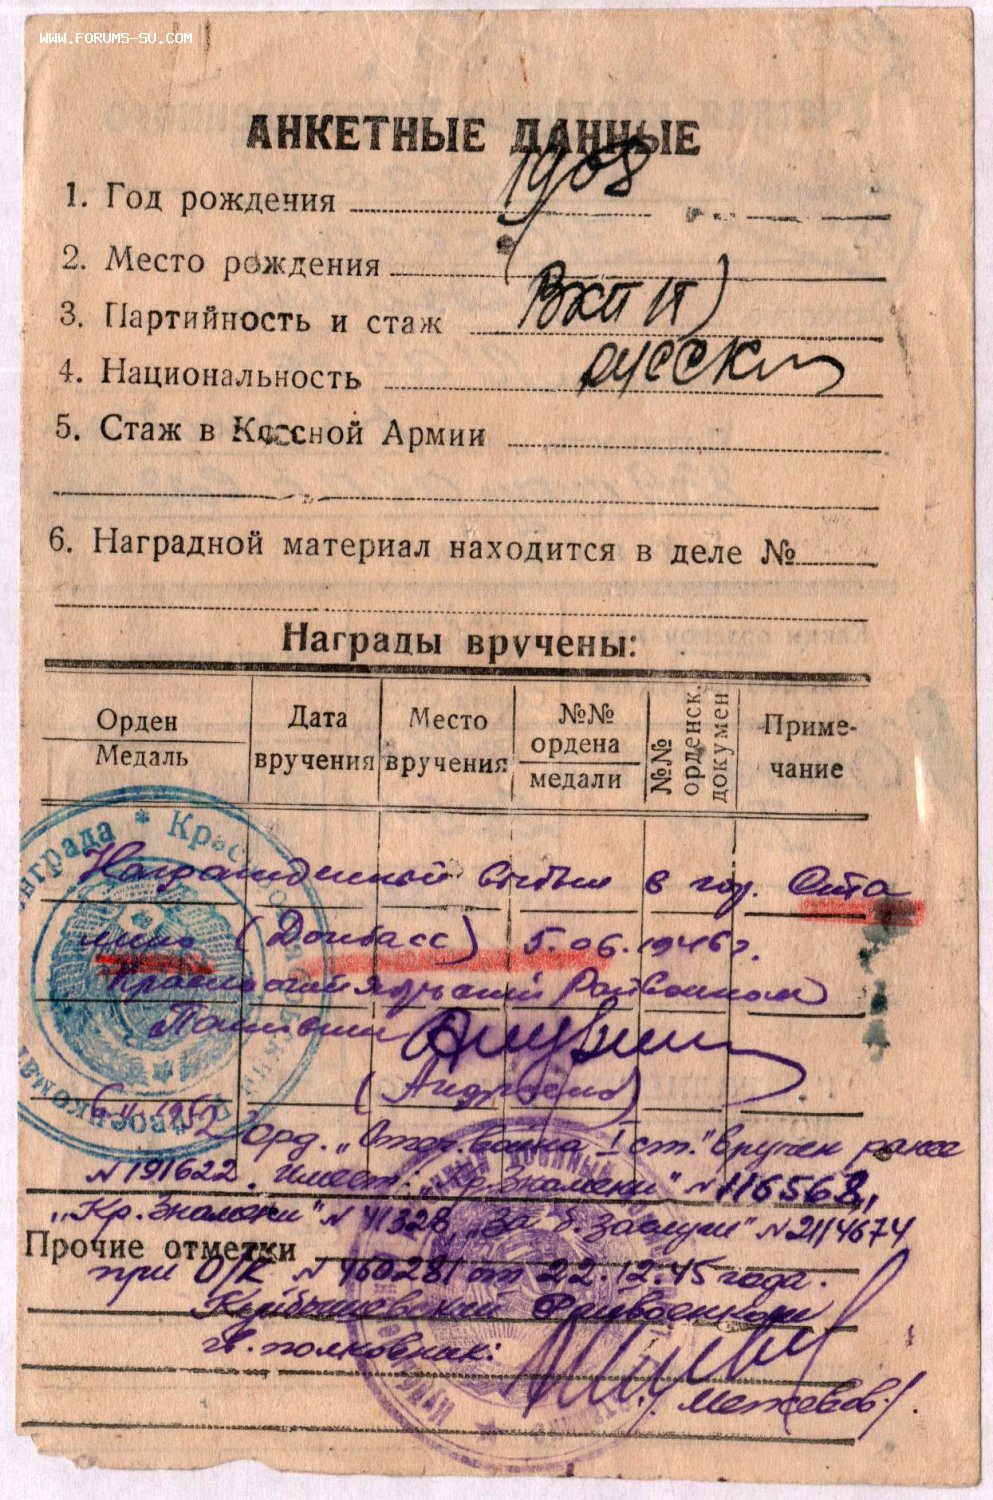 WWW.FORUMS-SU.COM
АНКЕТНЫЕ ДАННЫЕ
1. Год рождения 1908
2. Место рождения
3. Партийность и стаж
4. Национальность русский
5. Стаж в Красной Армии
6. Наградной материал находится в деле №
Награды вручены:
Орден
Медаль
Дата вручения
Место вручения
№№ ордена
медали
№№ орденск. докумен
Приме-
чание
Награжденный выбыл в гор. Ста
лино (Донбасс) 5.06.1946г.
Красногвардейский Райвоенком
Полковник
6.II.1952 Орд. „Отеч. война I ст." вручен ранее
N 191622. Имеет: „Кр. Знамени" N 116568,
„Кр. Знамени" N 41328, „За б. заслуги" N 2114674
Прочие отметки
при О/К N 460281 от 22.12.45 года.
Куйбышевский Райвоенком
гв. полковник:
/Межевов/.